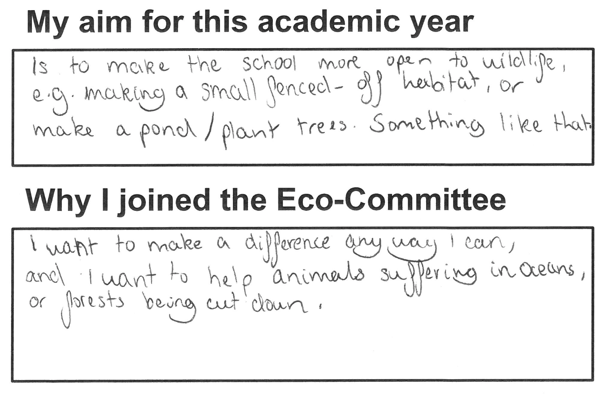 My aim for this academic year
Is to make the school more open to wildlife,
e.g. making a small fenced-off habitat, or
make a pond/plant trees. Something like that.
Why I joined the Eco-Committee
I want to make a difference any way I can,
and I want to help animals suffering in oceans,
or forests being cut down.